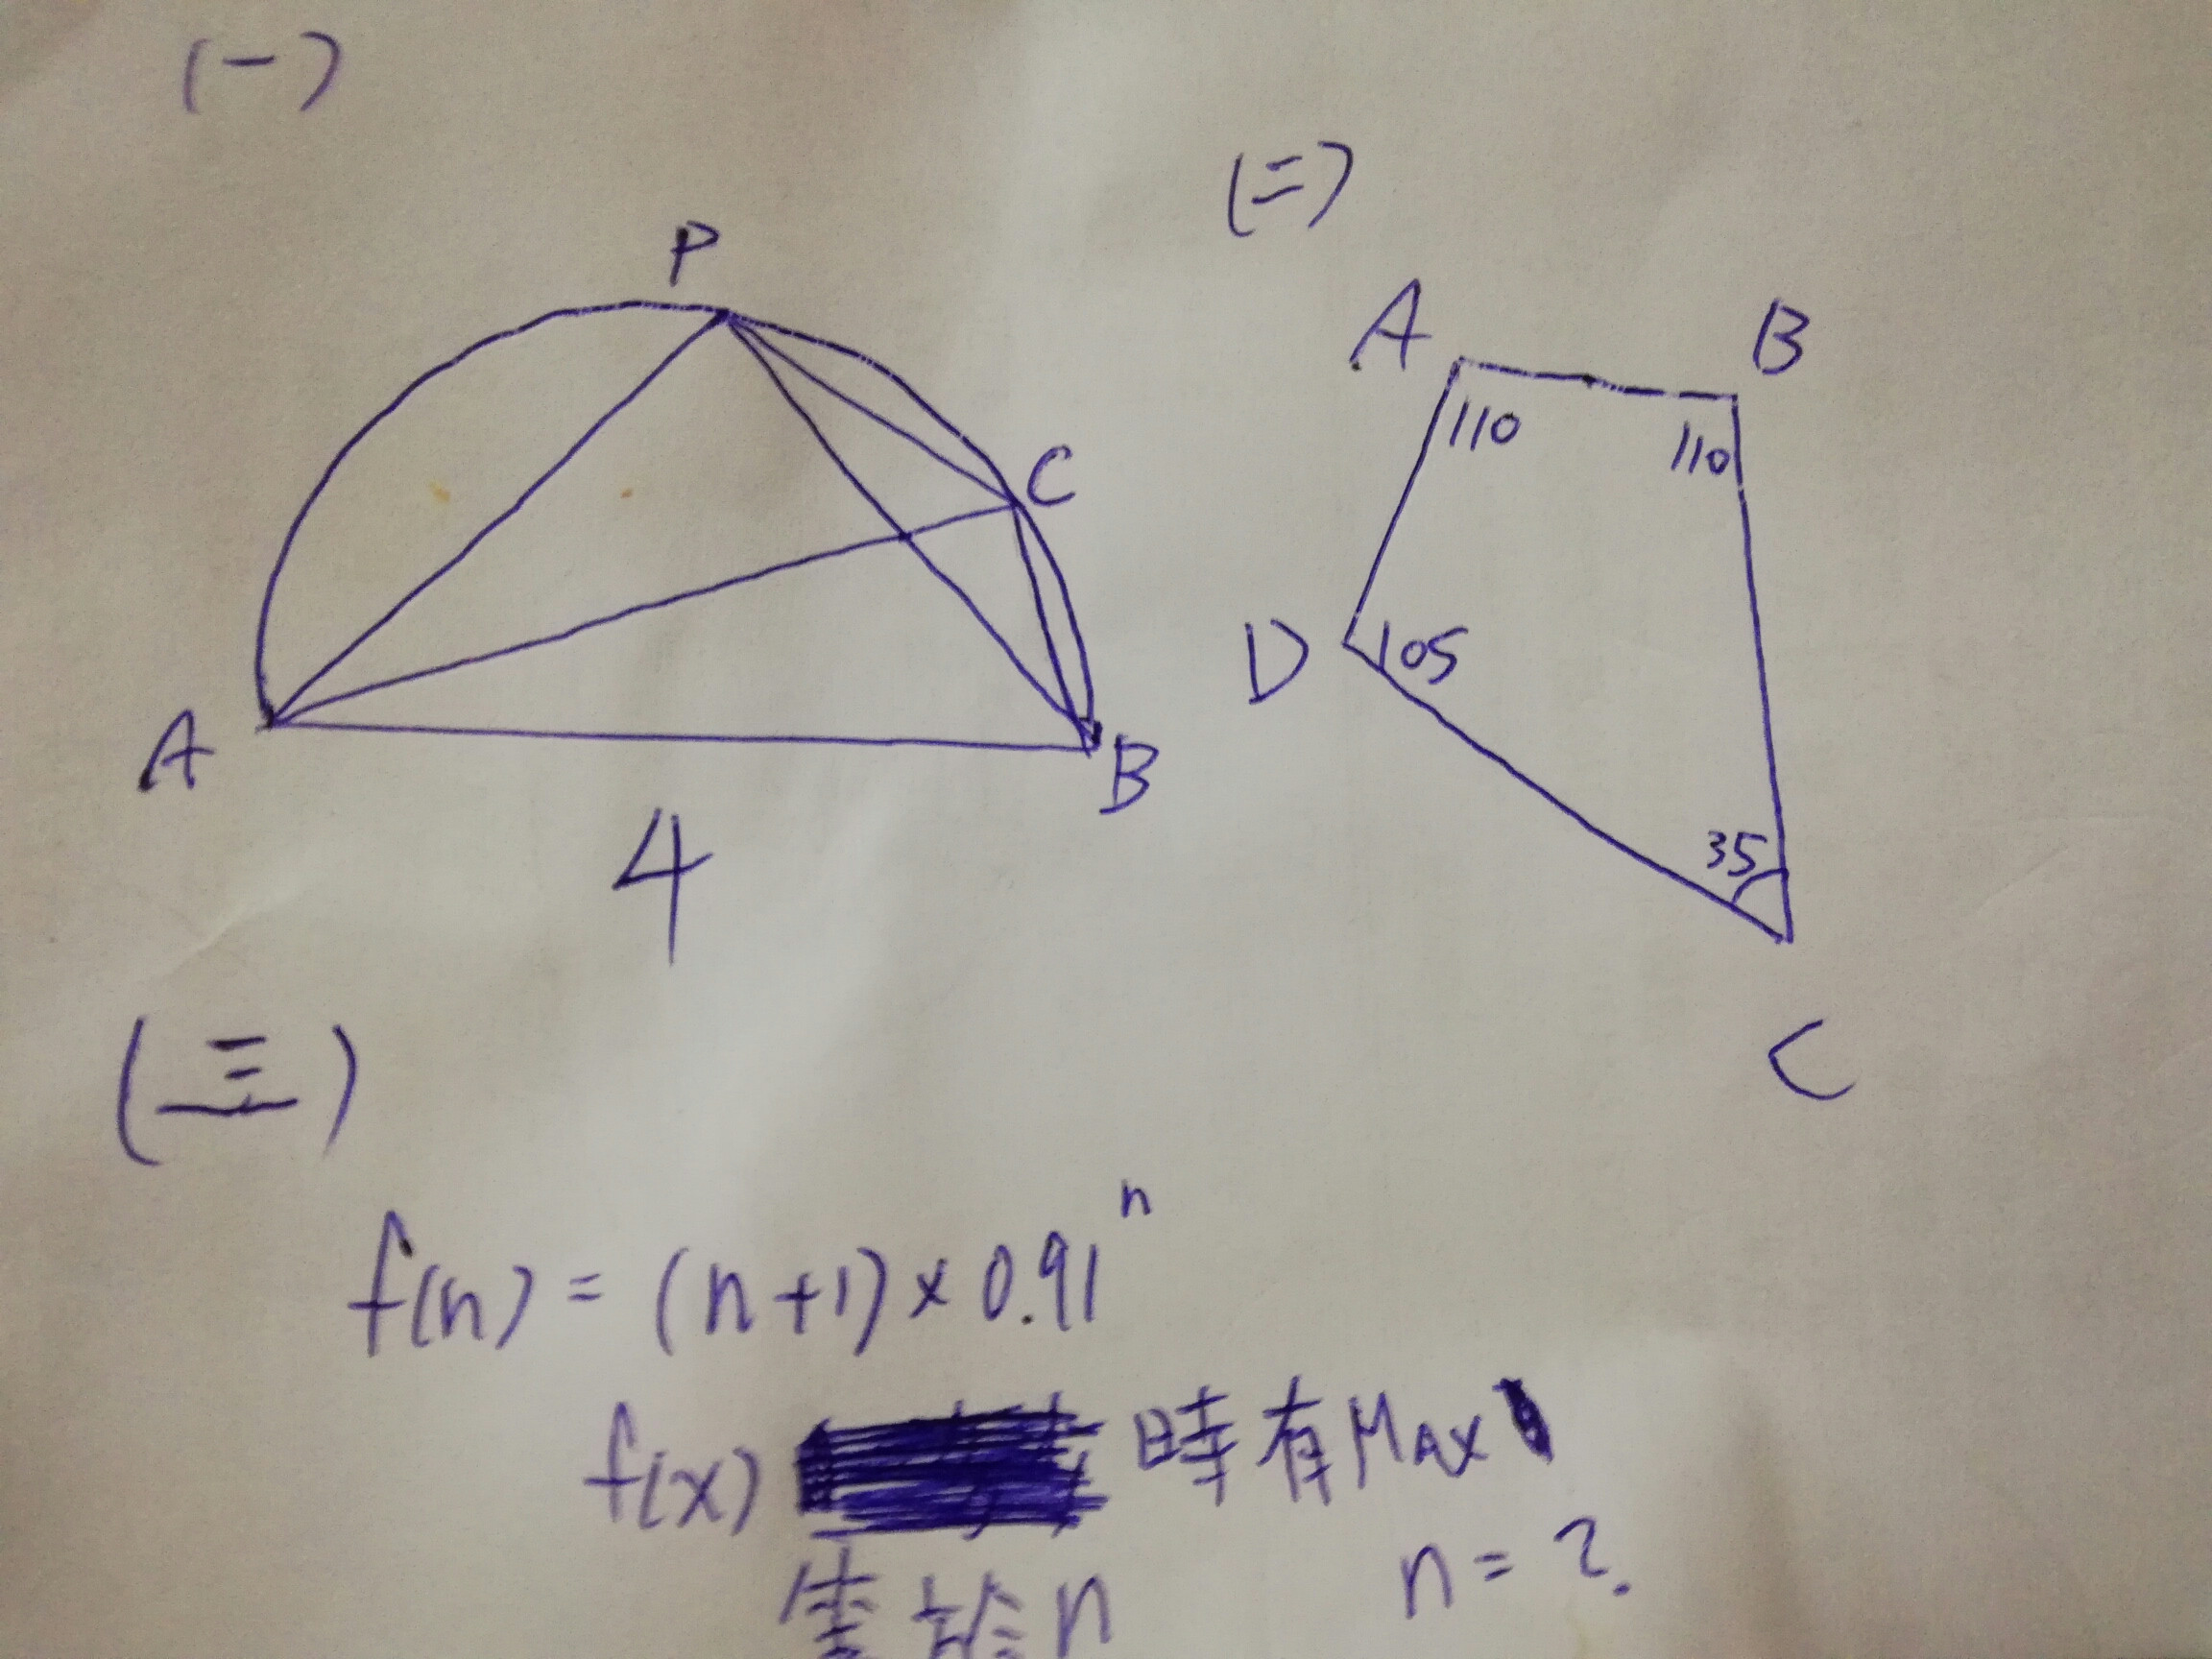 (一)
P
C
A
B
4
(二)
A
B
110
110
D
105
35
C
(三)
f(n) = (n+1) × 0.91ⁿ
f(x) 時有MAX
n = ?.
n